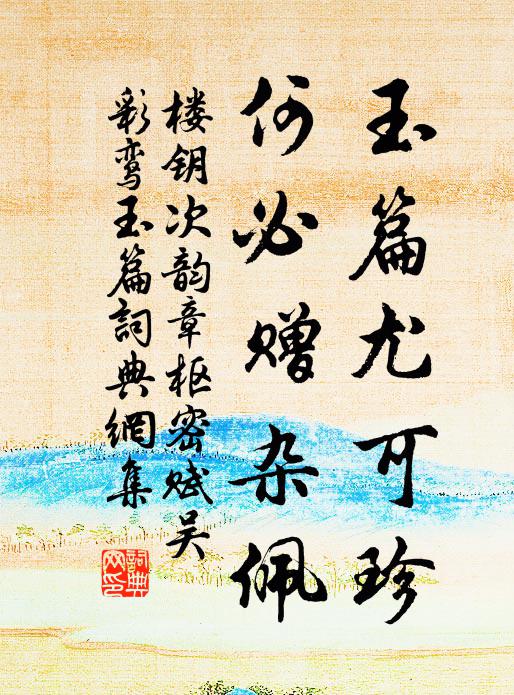 玉篇尤可珍
何必赠杂佩
楼钥次韵章枢密赋吴
彩鸾玉篇詞典網集
詞典